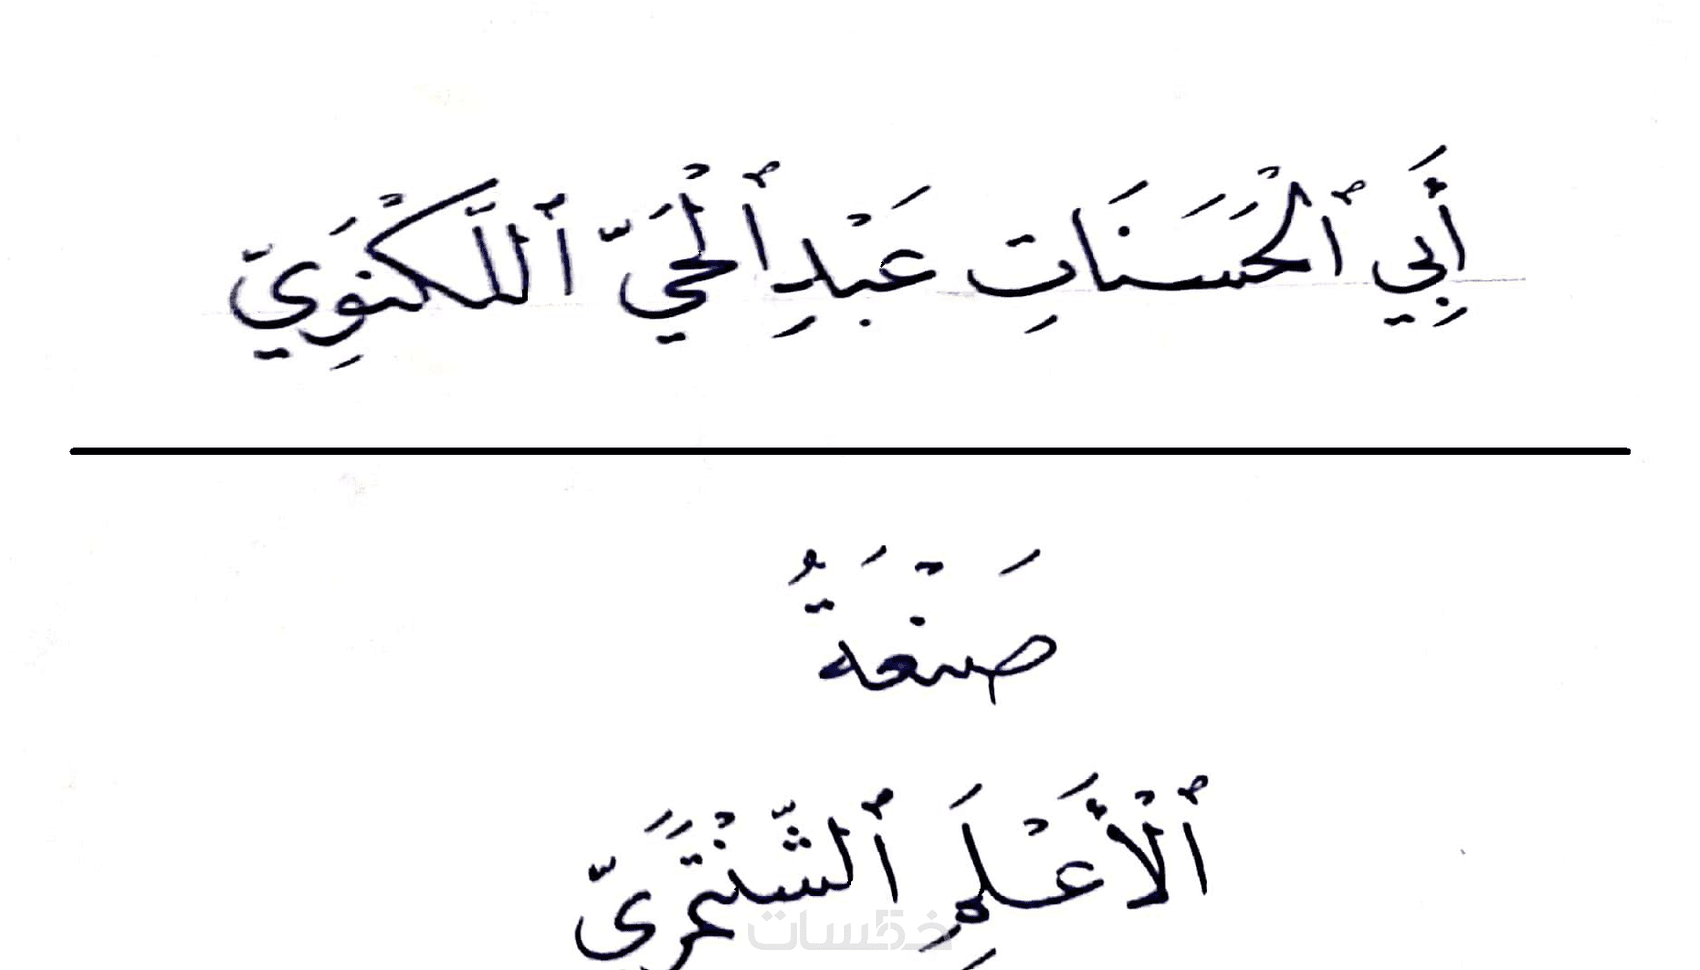 أَبِي ٱلْحَسَنَاتِ عَبْدِ ٱلْحَيِّ ٱللَّكْنَوِيّ
صَنْعَةُ
ٱلْأَعْلَمِ ٱلشَّنْتَمَرِيّ
خمسات